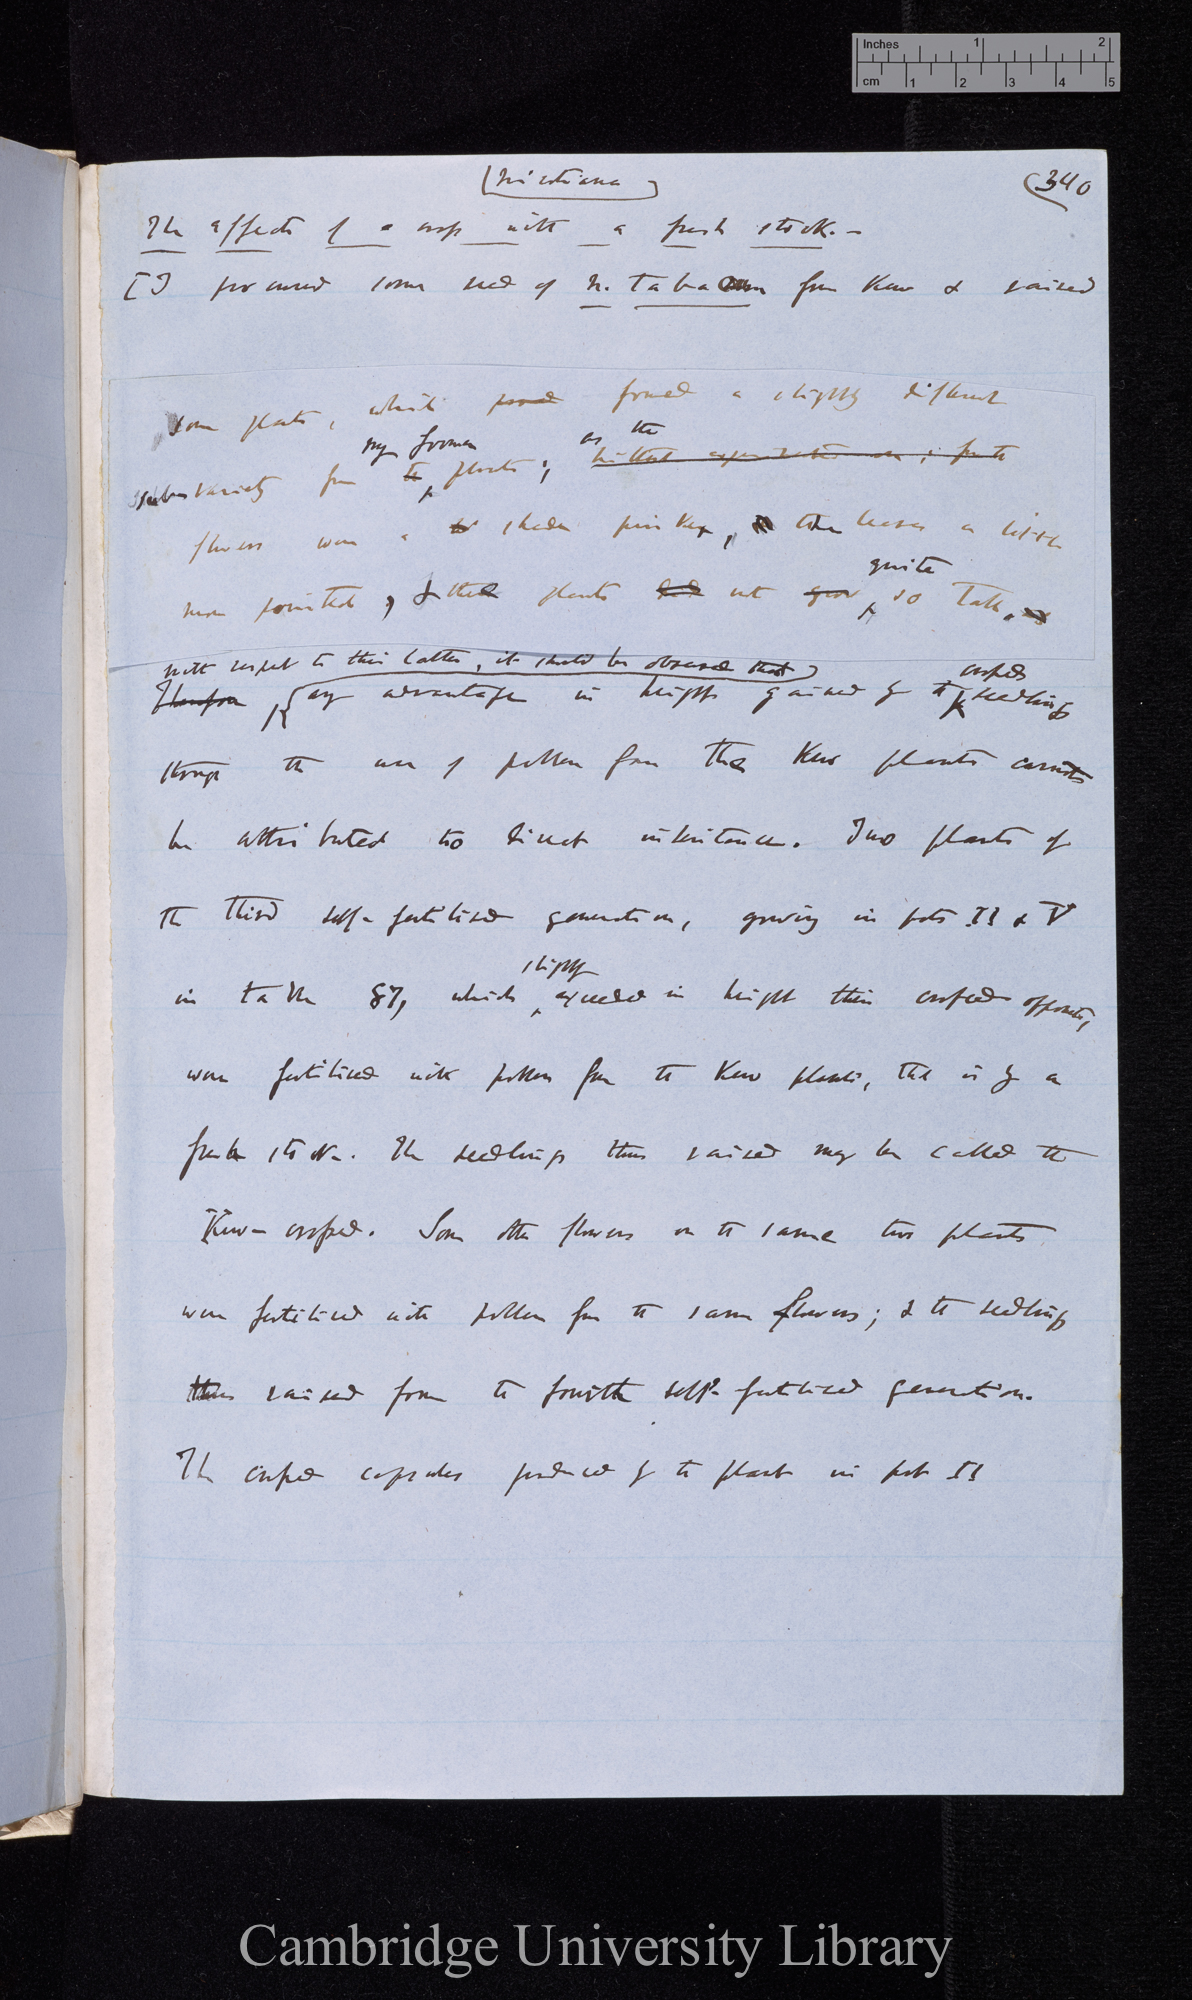 Inches 1 2
cm 1 2 3 4 5
(Nicotiana)
(340
The effects of a cross with a fresh stock. —
[I procured some seed of N. tabacum from Kew & raised
some plants, which formed a slightly different
my former as the
sub-variety from the plants;
flowers were a shade pinker, the leaves a little
quite
more pointed, & the plants not so tall.
With respect to this latter, it should be observed that) crossed
Therefore (any advantage in height gained by the seedlings
through the use of pollen from the Kew plants cannot
be attributed to direct inheritance. Two plants of
the third self-fertilised generation, growing in pots II & V
slightly
in table 87, which exceeded in height their crossed opponents,
were fertilised with pollen from the Kew plants, that is by a
fresh stock. The seedlings thus raised may be called the
Kew-crossed. Some other flowers on the same two plants
were fertilised with pollen from the same flowers; & the seedlings
thus raised form the fourth self-fertilised generation.
The crossed capsules produced by the plant in pot II
Cambridge University Library